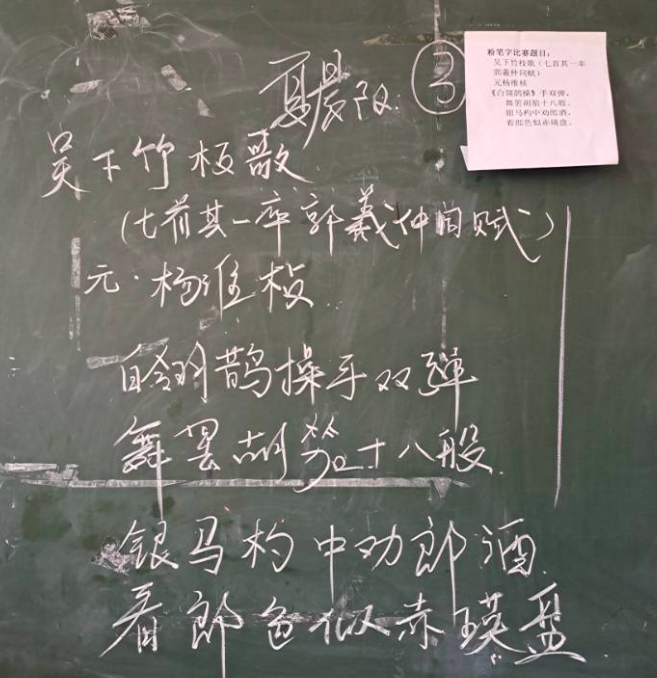 夏晨阳 ③
吴下竹枝歌
（七首其一率郭羲仲同赋）
元·杨维桢
白翎鹊操手双弹
舞罢胡笳十八般
银马杓中劝郎酒
看郎色似赤瑛盘
粉笔字比赛题目：
吴下竹枝歌（七首其一率
郭羲仲同赋）
元杨维桢
《白翎鹊操》手双弹，
舞罢胡笳十八般。
银马杓中劝郎酒，
看郎色似赤瑛盘。